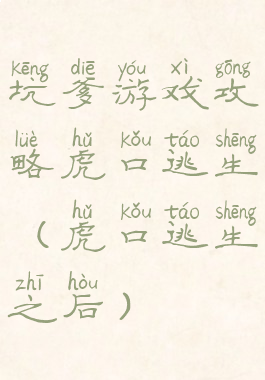 kēng diē yóu xì gōng
坑爹游戏攻
lüè hǔ kǒu táo shēng
略虎口逃生
hǔ kǒu táo shēng
（虎口逃生
zhī hòu
之后）